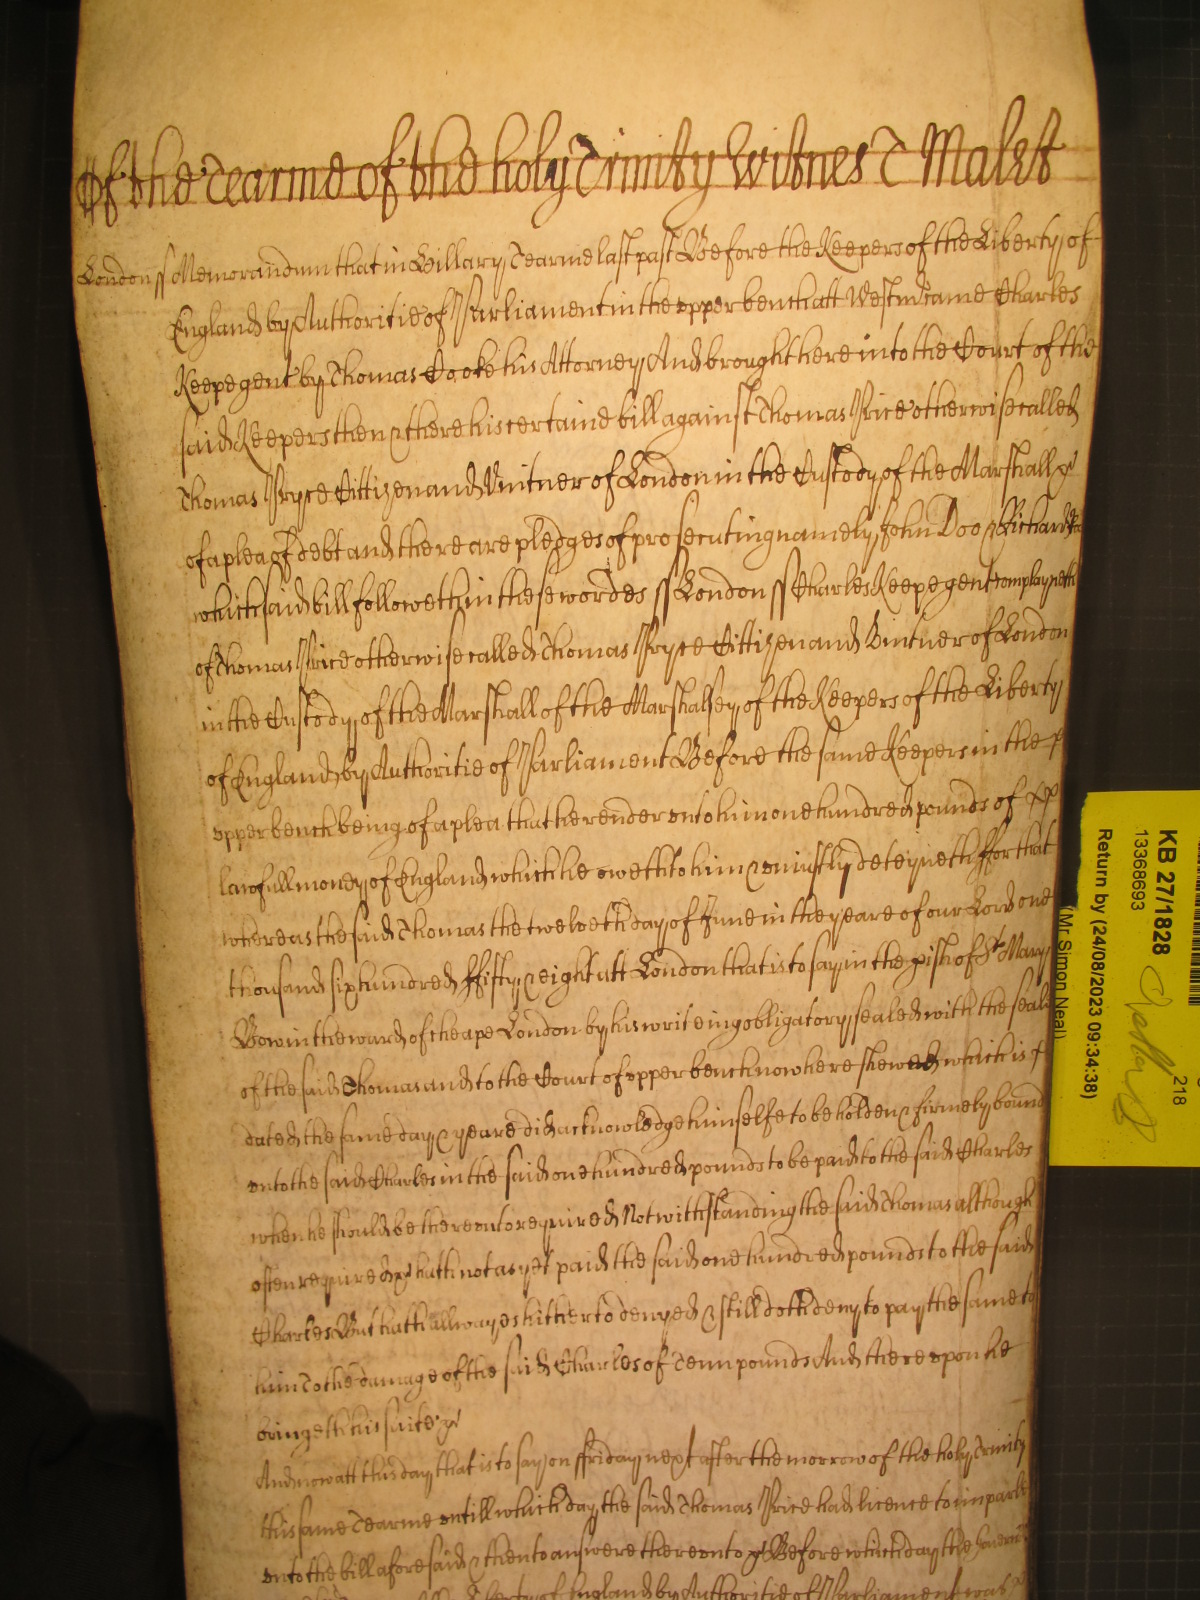 Of the Tearme of the holy Trinity Witnes T Malett
London ss Memorandum that in Hillary Tearme last past Before the Keepers of the Liberty of
England by Authoritie of Parliament in the upper bench att Westm came Charles
Keepe gent by Thomas Cooke his Attorney And brought here into the Court of the
said Keepers then & there his certaine bill against Thomas Price otherwise called
Thomas Pryce Cittizen and Vintner of London in the Custody of the Marshall &c
of a plea of debt and there are pledges of prosecuting namely John Doo & Richard Roo
which said bill followeth in these wordes ss London ss Charles Keepe gent complayneth
of Thomas Price otherwise called Thomas Pryce Cittizen and Vintner of London
in the Custody of the Marshall of the Marshalsey of the Keepers of the Liberty
of England by Authoritie of Parliament Before the same Keepers in the
upper bench being of a plea that he render unto him one hundred pounds of
lawfull money of England which he oweth to him & uniustly deteyneth ffor that
whereas the said Thomas the twelveth day of June in the yeare of our Lord one
thousand six hundred ffifty & eight att London that is to say in the pish of St Mary
Bow in the ward of cheape London by his writeing obligatory sealed with the seale
of the said Thomas and to the Court of upper bench now here shewed which is
dated the same day & yeare did acknowledge himselfe to be holden & firmely bound
unto the said Charles in the said one hundred pounds to be paid to the said Charles
when he should be thereunto required Notwithstanding the said Thomas although
often required &c hath not as yet paid the said one hundred pounds to the said
Charles But hath allwayes hitherto denyed & still doth deny to pay the same to
him To the damage of the said Charles of Tenn pounds And thereupon he
bringeth his suite &c
And now att this day that is to say on ffriday next after the morrow of the holy Trinity
this same Tearme untill which day the said Thomas Price had licence to imparle
unto the bill aforesaid & then to answere thereunto &c Before which day the
Liberty of England by Authoritie of Parliament was
KB 27/1828
13368693
Return by (24/08/2023 09:34:38)
(Mr Simon Neal)
218